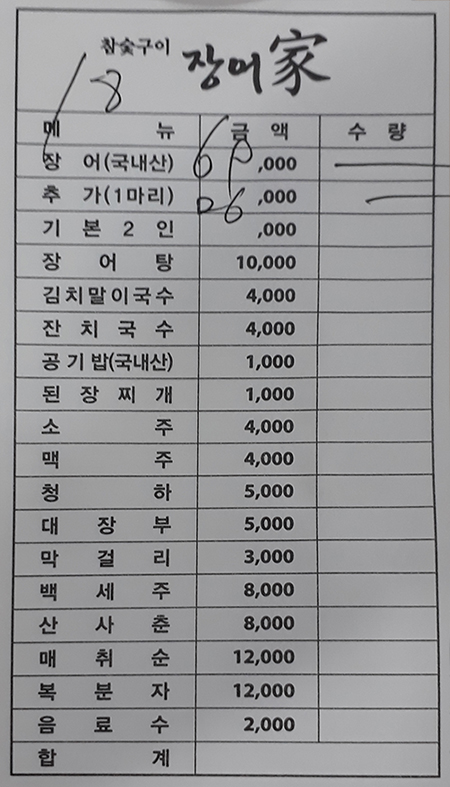 참숯구이 장어家
8
메뉴 금액 수량
장어(국내산) ,000
추가(1마리) ,000
기본2인 ,000
장어탕 10,000
김치말이국수 4,000
잔치국수 4,000
공기밥(국내산) 1,000
된장찌개 1,000
소주 4,000
맥주 4,000
청하 5,000
대장부 5,000
막걸리 3,000
백세주 8,000
산사춘 8,000
매취순 12,000
복분자 12,000
음료수 2,000
합계